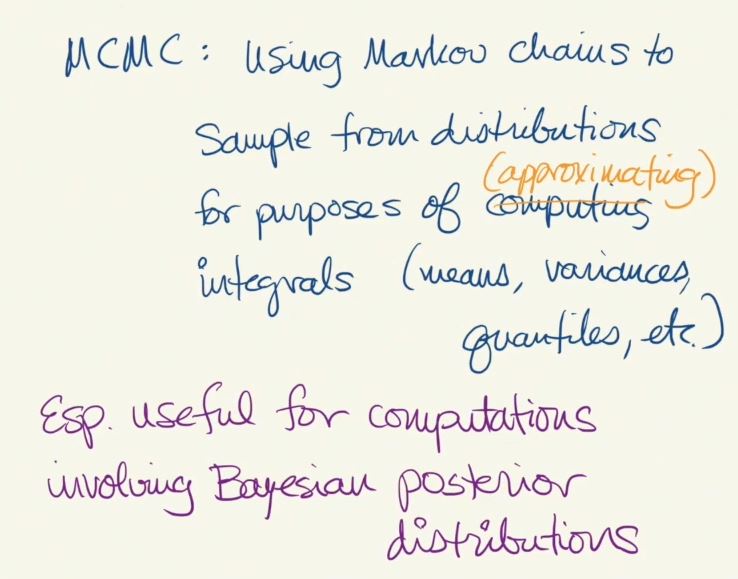 MCMC : Using Markov chains to
Sample from distributions
(approximating)
for purposes of computing
integrals (means, variances,
quantiles, etc.)
Esp. useful for computations
involving Bayesian posterior
distributions